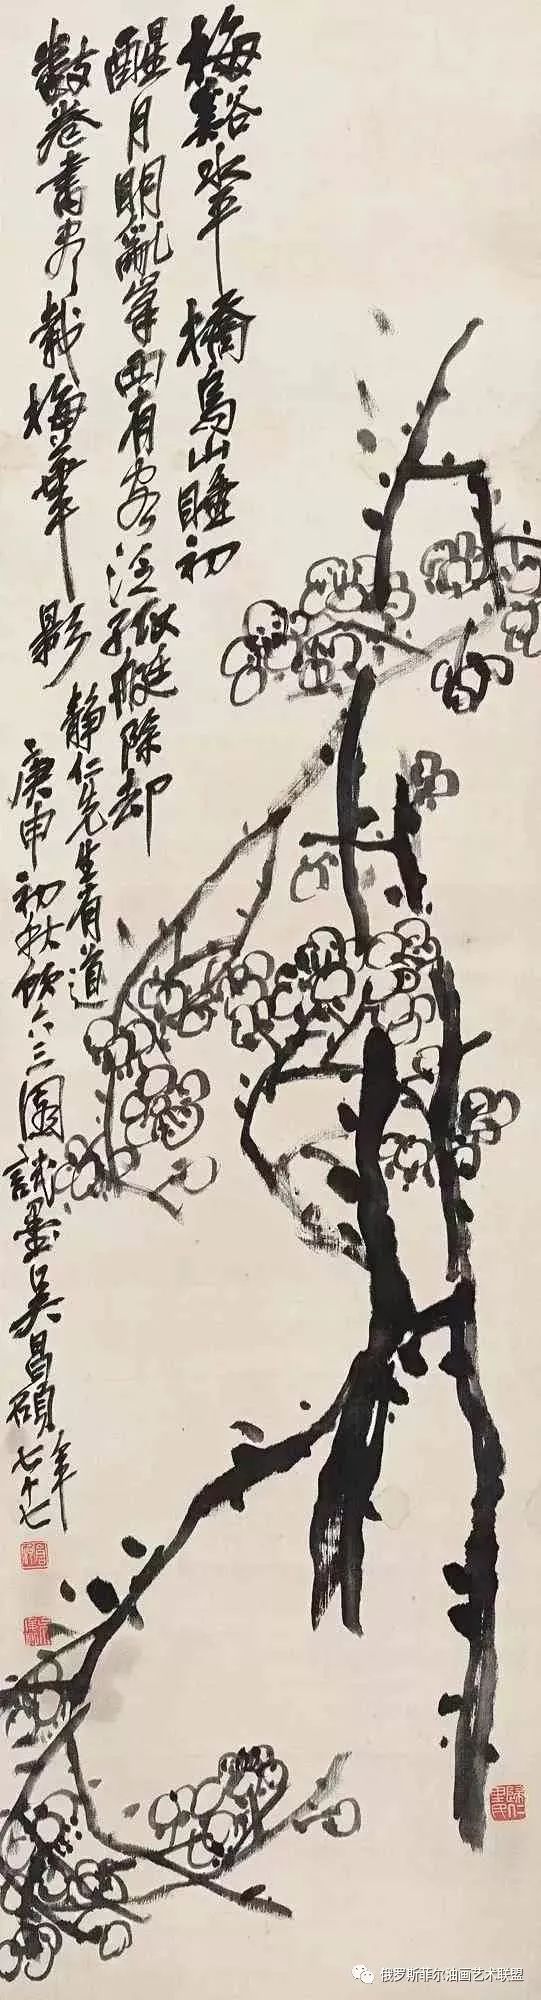 梅谿水平橋烏山睡初
醒月明亂峯西有客泛孤艇除却
數卷書盡載梅華影
静仁先生有道
庚申初秋
六三園
吴昌碩年七十七
歸仁里民
俄罗斯菲尔油画艺术联盟